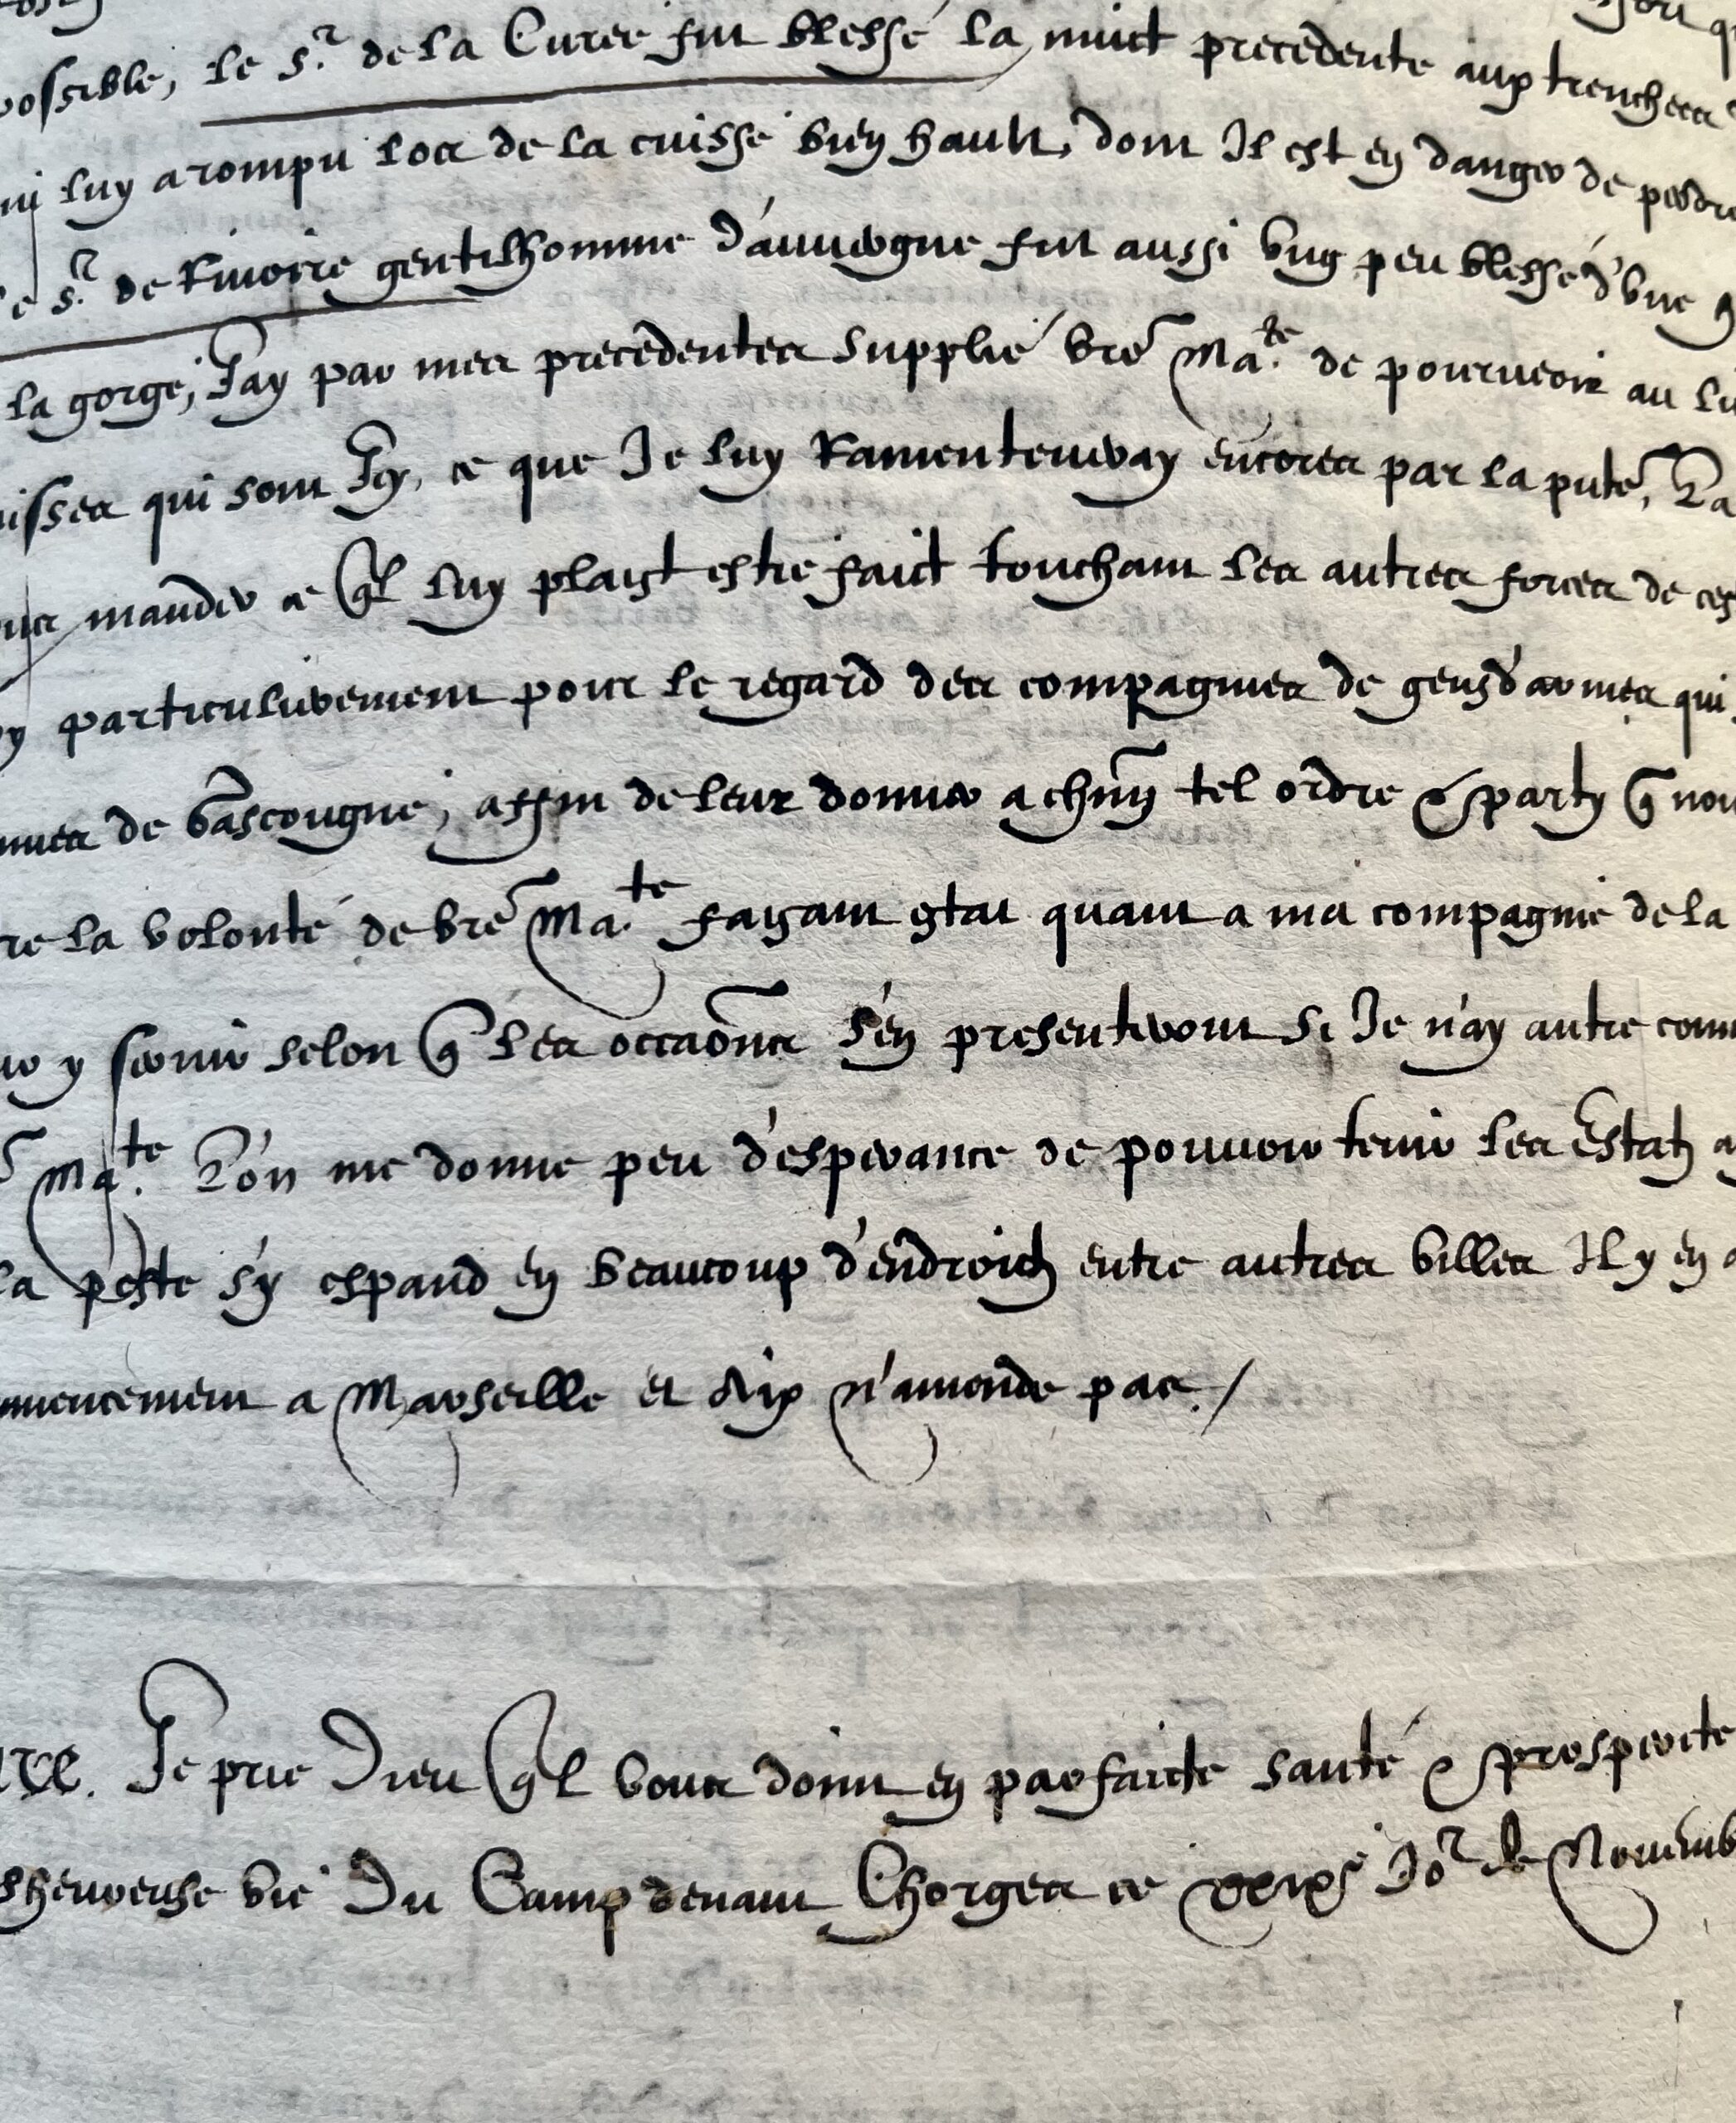 possible, le Sr. de la Curee fut blessé la nuict precedente aux trenchees
luy a rompu l'os de la cuisse bien hault, dont Il est en danger de perdre
Sr. de Rivoire gentilhomme d'auvergne fut aussi ung peu blessé d'une
la gorge, J'ay par mes precedentes supplié vre Ma.te de pourveoir au
qui sont Icy, ce que Je luy Ramenteuvray encores par la pnte, La
mander ce ql luy plaist estre faict touchant les autres forces de
particulierement pour le regard des compagnies de gensd'armes qui
de Gascougne, affin de leur donner a chun tel ordre & party q
la volonté de vre Ma.te faisant estat quant a ma compagnie de la
y servir selon q les occaons s'en presenteront si Je n'ay autre
Ma.te L'on me donne peu d'esperance de pouvoir tenir les Estatz
la peste s'y espand en beaucoup d'endroictz entre autres villes Il y en
a Marseille et Aix n'amende pas./
Je prie Dieu ql vous doint en parfaicte santé & prosperite
vie Du Camp devant Chorges ce xxixe Jor de Novemb